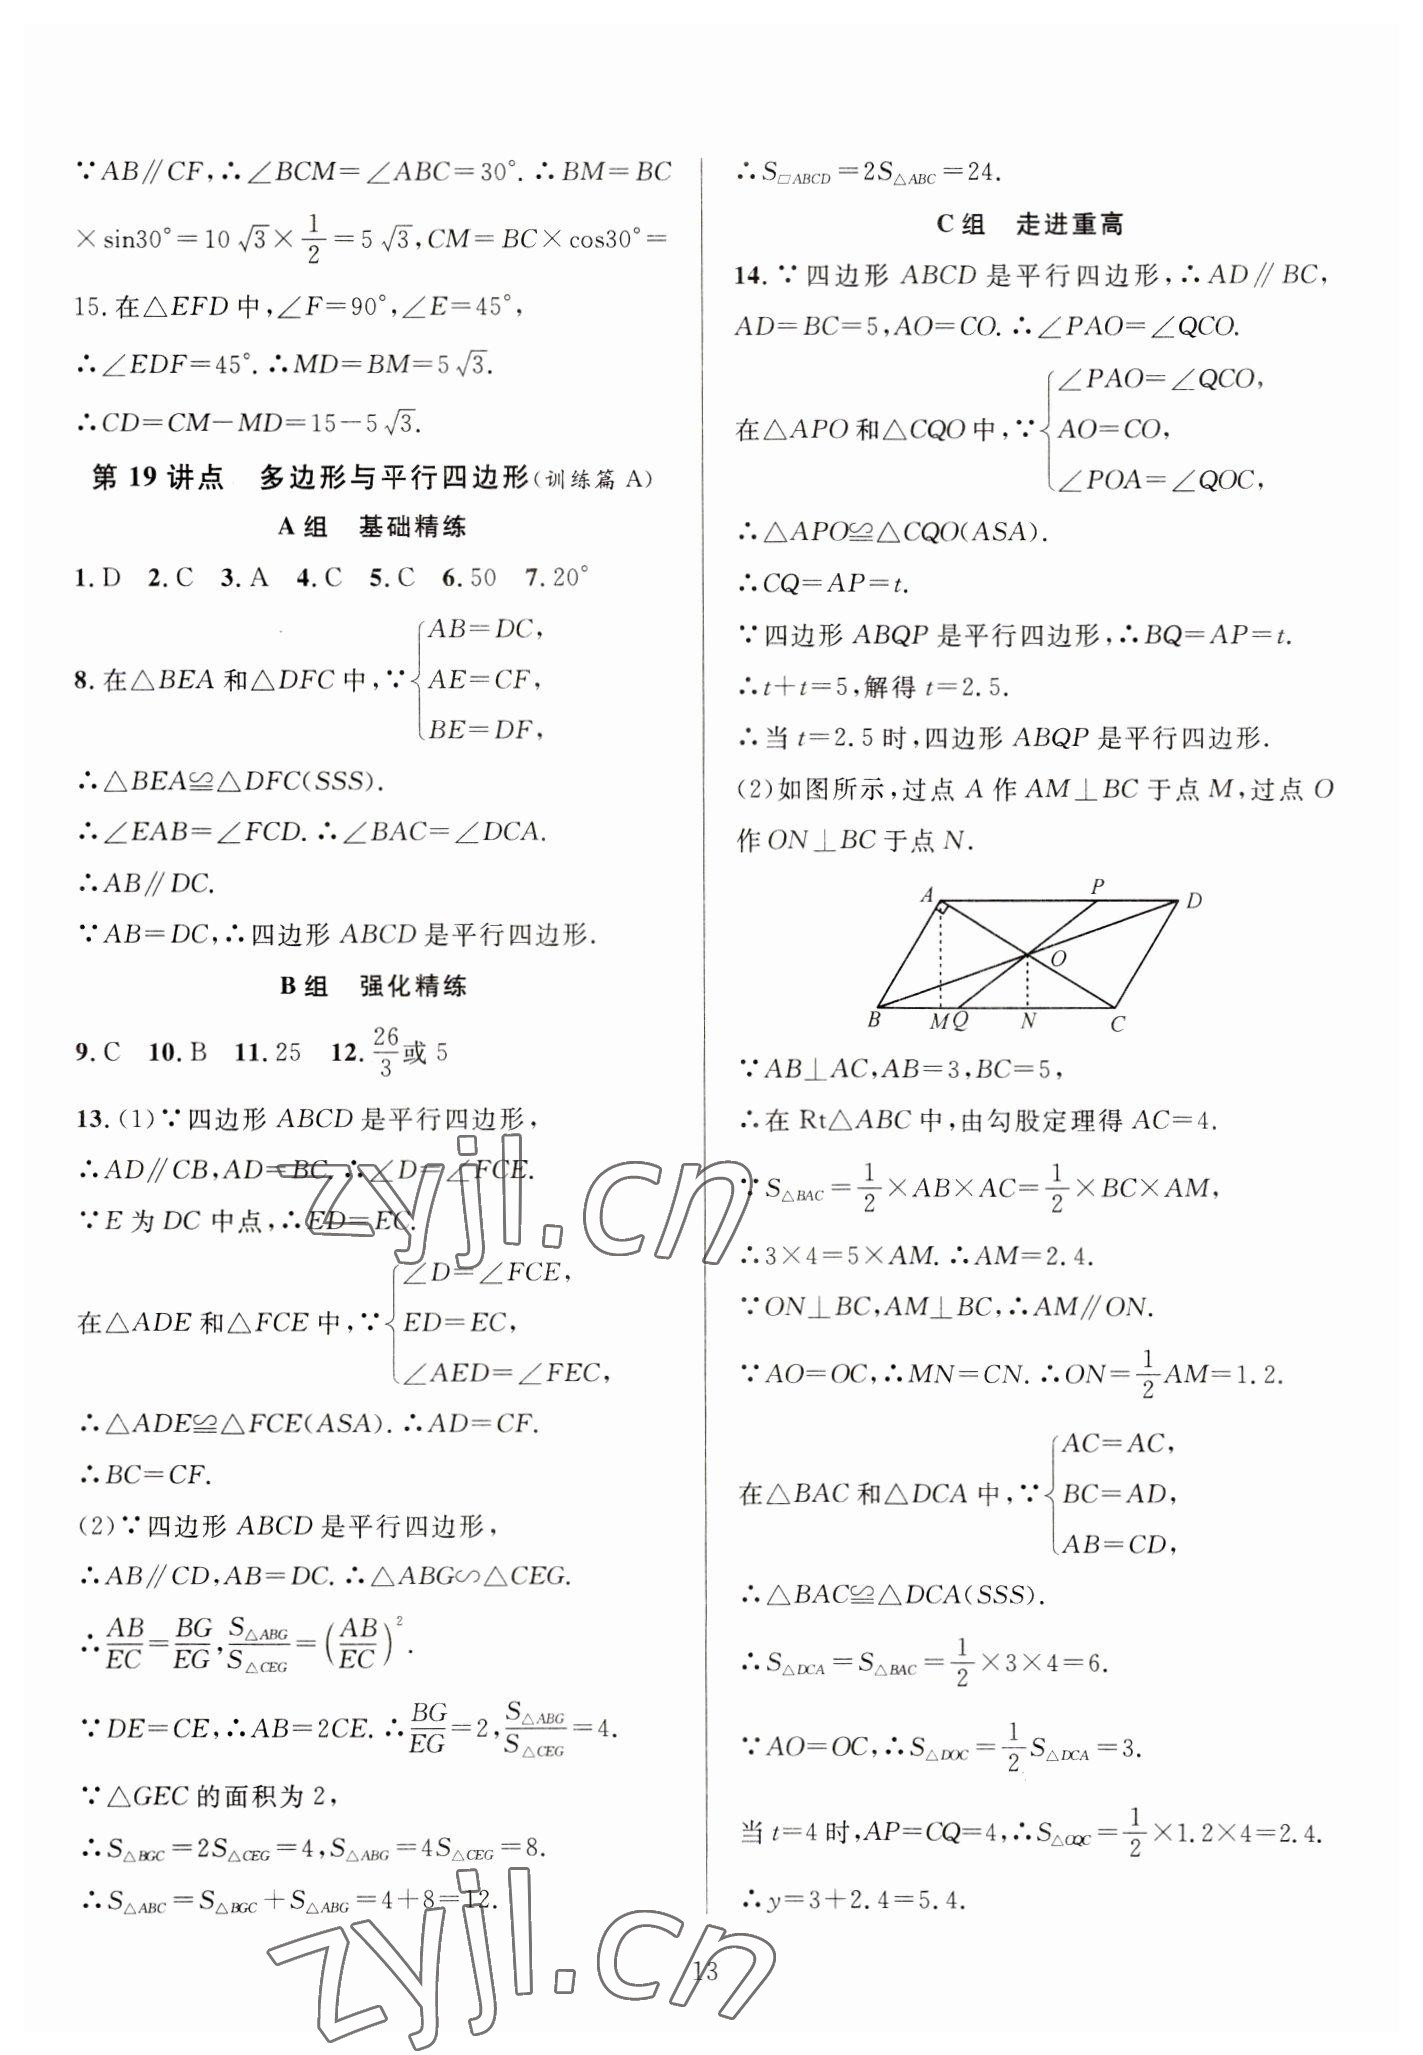 ∵AB∥CF,∴∠BCM=∠ABC=30°.∴BM=BC
×sin30°=10√3×1/2=5√3,CM=BC×cos30°=
15.在△EFD中,∠F=90°,∠E=45°,
∴∠EDF=45°.∴MD=BM=5√3.
∴CD=CM-MD=15-5√3.
第19讲点 多边形与平行四边形(训练篇A)
A组 基础精练
1.D 2.C 3.A 4.C 5.C 6.50 7.20°
8.在△BEA和△DFC中,∵{AB=DC,
AE=CF,
BE=DF,
∴△BEA≌△DFC(SSS).
∴∠EAB=∠FCD.∴∠BAC=∠DCA.
∴AB∥DC.
∵AB=DC,∴四边形ABCD是平行四边形.
B组 强化精练
9.C 10.B 11.25 12.26/3或5
13.(1)∵四边形ABCD是平行四边形,
∴AD∥CB,AD=BC.∴∠D=∠FCE.
∵E为DC中点,∴ED=EC.
在△ADE和△FCE中,∵{∠D=∠FCE,
ED=EC,
∠AED=∠FEC,
∴△ADE≌△FCE(ASA).∴AD=CF.
∴BC=CF.
(2)∵四边形ABCD是平行四边形,
∴AB∥CD,AB=DC.∴△ABG∽△CEG.
∴AB/EC=BG/EG,S△ABG/S△CEG=(AB/EC)².
∵DE=CE,∴AB=2CE.∴BG/EG=2,S△ABG/S△CEG=4.
∵△GEC的面积为2,
∴S△BGC=2S△CEG=4,S△ABG=4S△CEG=8.
∴S△ABC=S△BGC+S△ABG=4+8=12.
∴S▱ABCD=2S△ABC=24.
C组 走进重高
14.∵四边形ABCD是平行四边形,∴AD∥BC,
AD=BC=5,AO=CO.∴∠PAO=∠QCO.
在△APO和△CQO中,∵{∠PAO=∠QCO,
AO=CO,
∠POA=∠QOC,
∴△APO≌△CQO(ASA).
∴CQ=AP=t.
∵四边形ABQP是平行四边形,∴BQ=AP=t.
∴t+t=5,解得t=2.5.
∴当t=2.5时,四边形ABQP是平行四边形.
(2)如图所示,过点A作AM⊥BC于点M,过点O
作ON⊥BC于点N.
A P D
O
B M Q N C
∵AB⊥AC,AB=3,BC=5,
∴在Rt△ABC中,由勾股定理得AC=4.
∵S△BAC=1/2×AB×AC=1/2×BC×AM,
∴3×4=5×AM.∴AM=2.4.
∵ON⊥BC,AM⊥BC,∴AM∥ON.
∵AO=OC,∴MN=CN.∴ON=1/2AM=1.2.
在△BAC和△DCA中,∵{AC=AC,
BC=AD,
AB=CD,
∴△BAC≌△DCA(SSS).
∴S△DCA=S△BAC=1/2×3×4=6.
∵AO=OC,∴S△DOC=1/2S△DCA=3.
当t=4时,AP=CQ=4,∴S△OQC=1/2×1.2×4=2.4.
∴y=3+2.4=5.4.
13
zyjl.cn
zyjl.cn